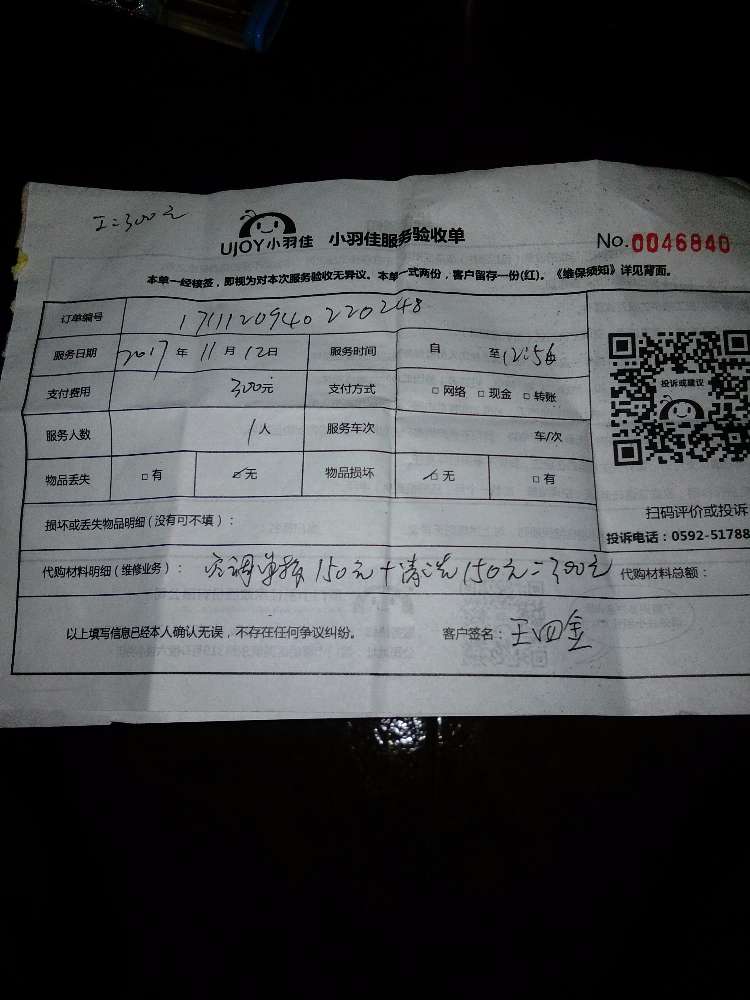 工=300元
UJOY小羽佳 小羽佳服务验收单 No.0046840
本单一经核签，即视为对本次服务验收无异议。本单一式两份，客户留存一份(红)。《维保须知》详见背面。
订单编号 1711120940220248
服务日期 2017年11月12日 服务时间 自 至12:56
支付费用 300元 支付方式 □网络 □现金 □转账
投诉或建议
服务人数 1人 服务车次 车/次
物品丢失 □有 ☑无 物品损坏 ☑无 □有
损坏或丢失物品明细(没有可不填)：
扫码评价或投诉
投诉电话：0592-51788
代购材料明细(维修业务)：空调单拆150元+清洗150元=300元 代购材料总额：
以上填写信息已经本人确认无误，不存在任何争议纠纷。 客户签名：王四金